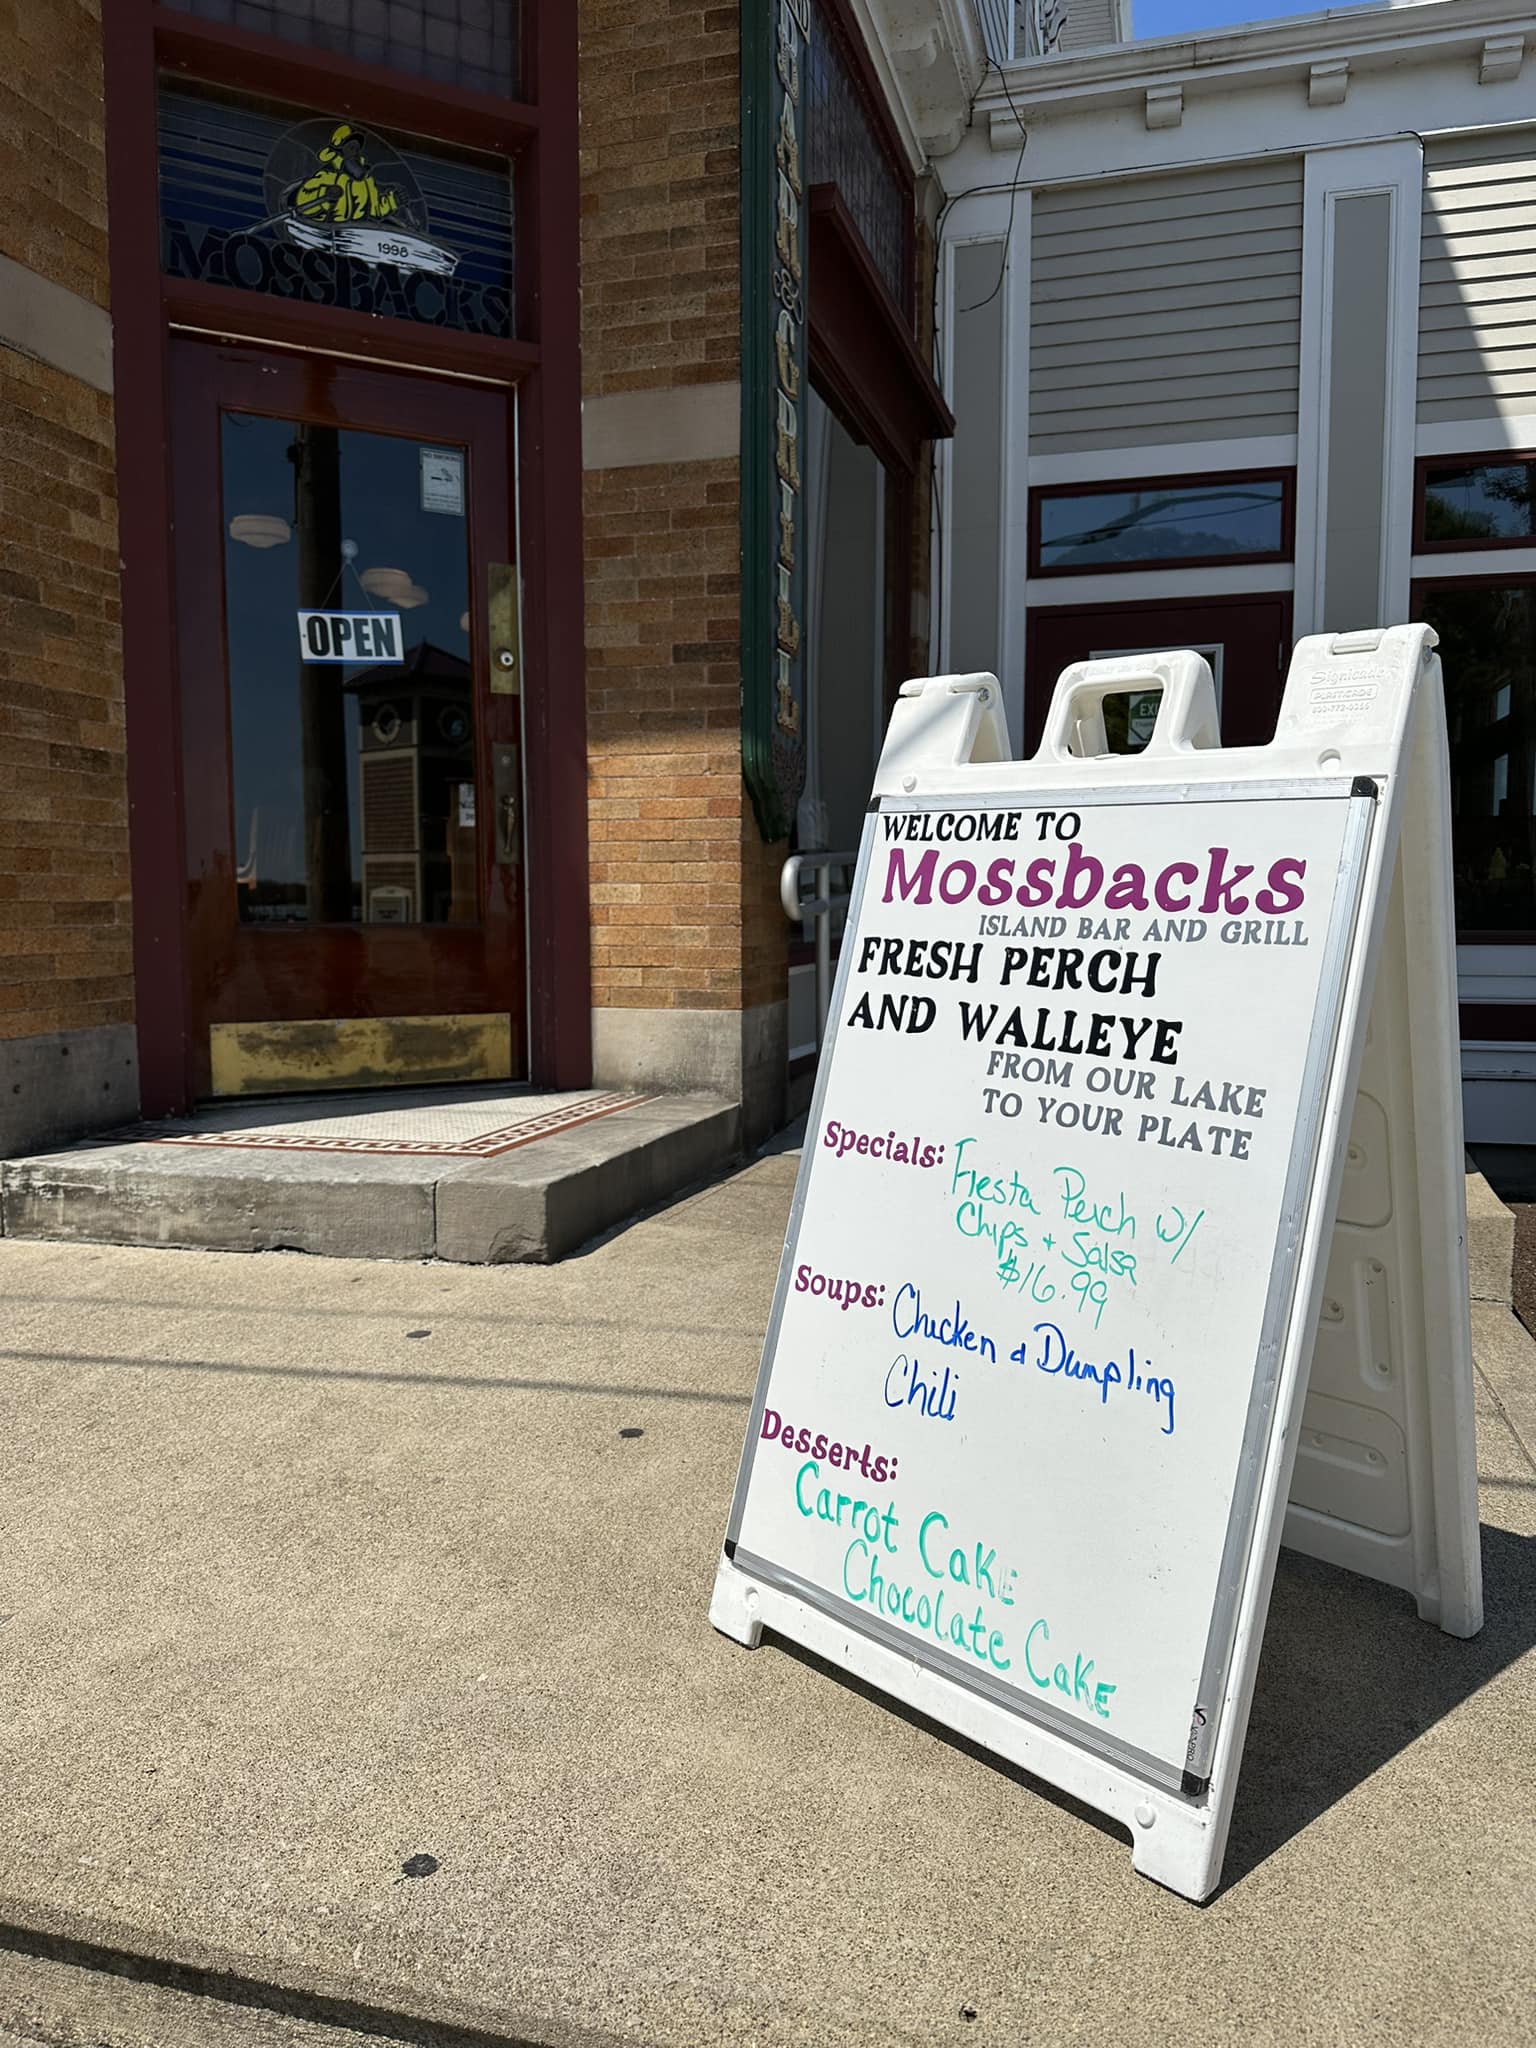 1998
MOSSBACKS
NO SMOKING
OPEN
BAR & GRILL
EXIT
Signicade
PLASTICADE
800-772-0355
WELCOME TO
Mossbacks
ISLAND BAR AND GRILL
FRESH PERCH
AND WALLEYE
FROM OUR LAKE
TO YOUR PLATE
Specials: Fiesta Perch w/
Chips + Salsa
$16.99
Soups: Chicken & Dumpling
Chili
Desserts:
Carrot Cake
Chocolate Cake